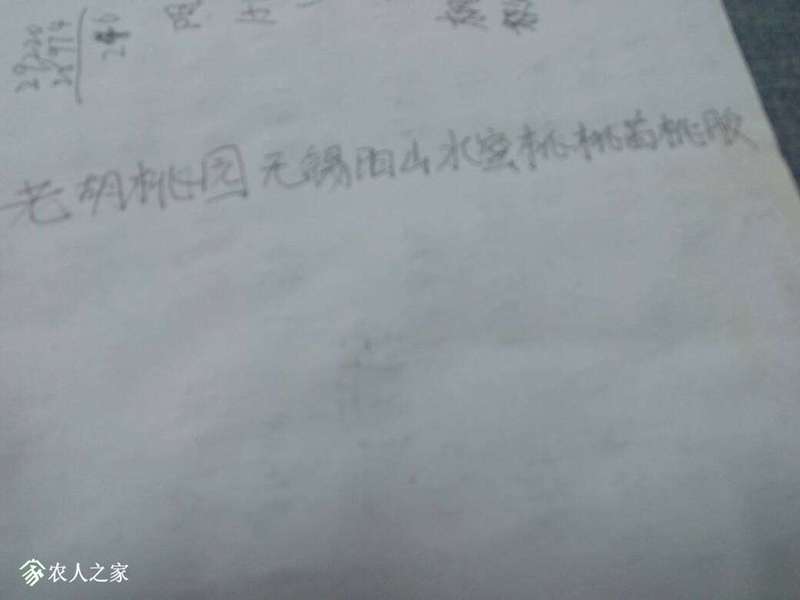 老胡桃园无锡阳山水蜜桃桃苗桃胶
农人之家